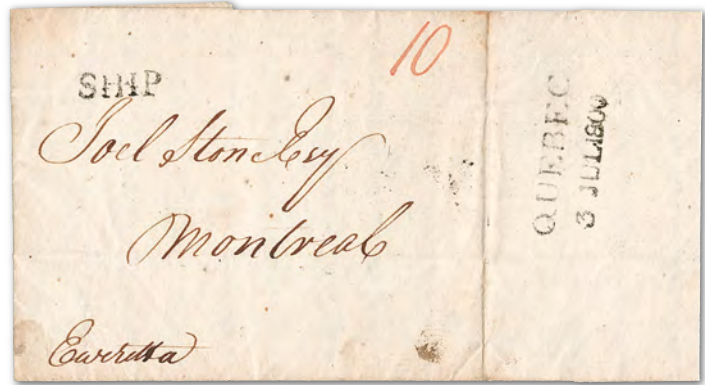 10
SHIP
Joel Stone Esqr
Montreal
Eweretta
QUEBEC
3 JUL1800